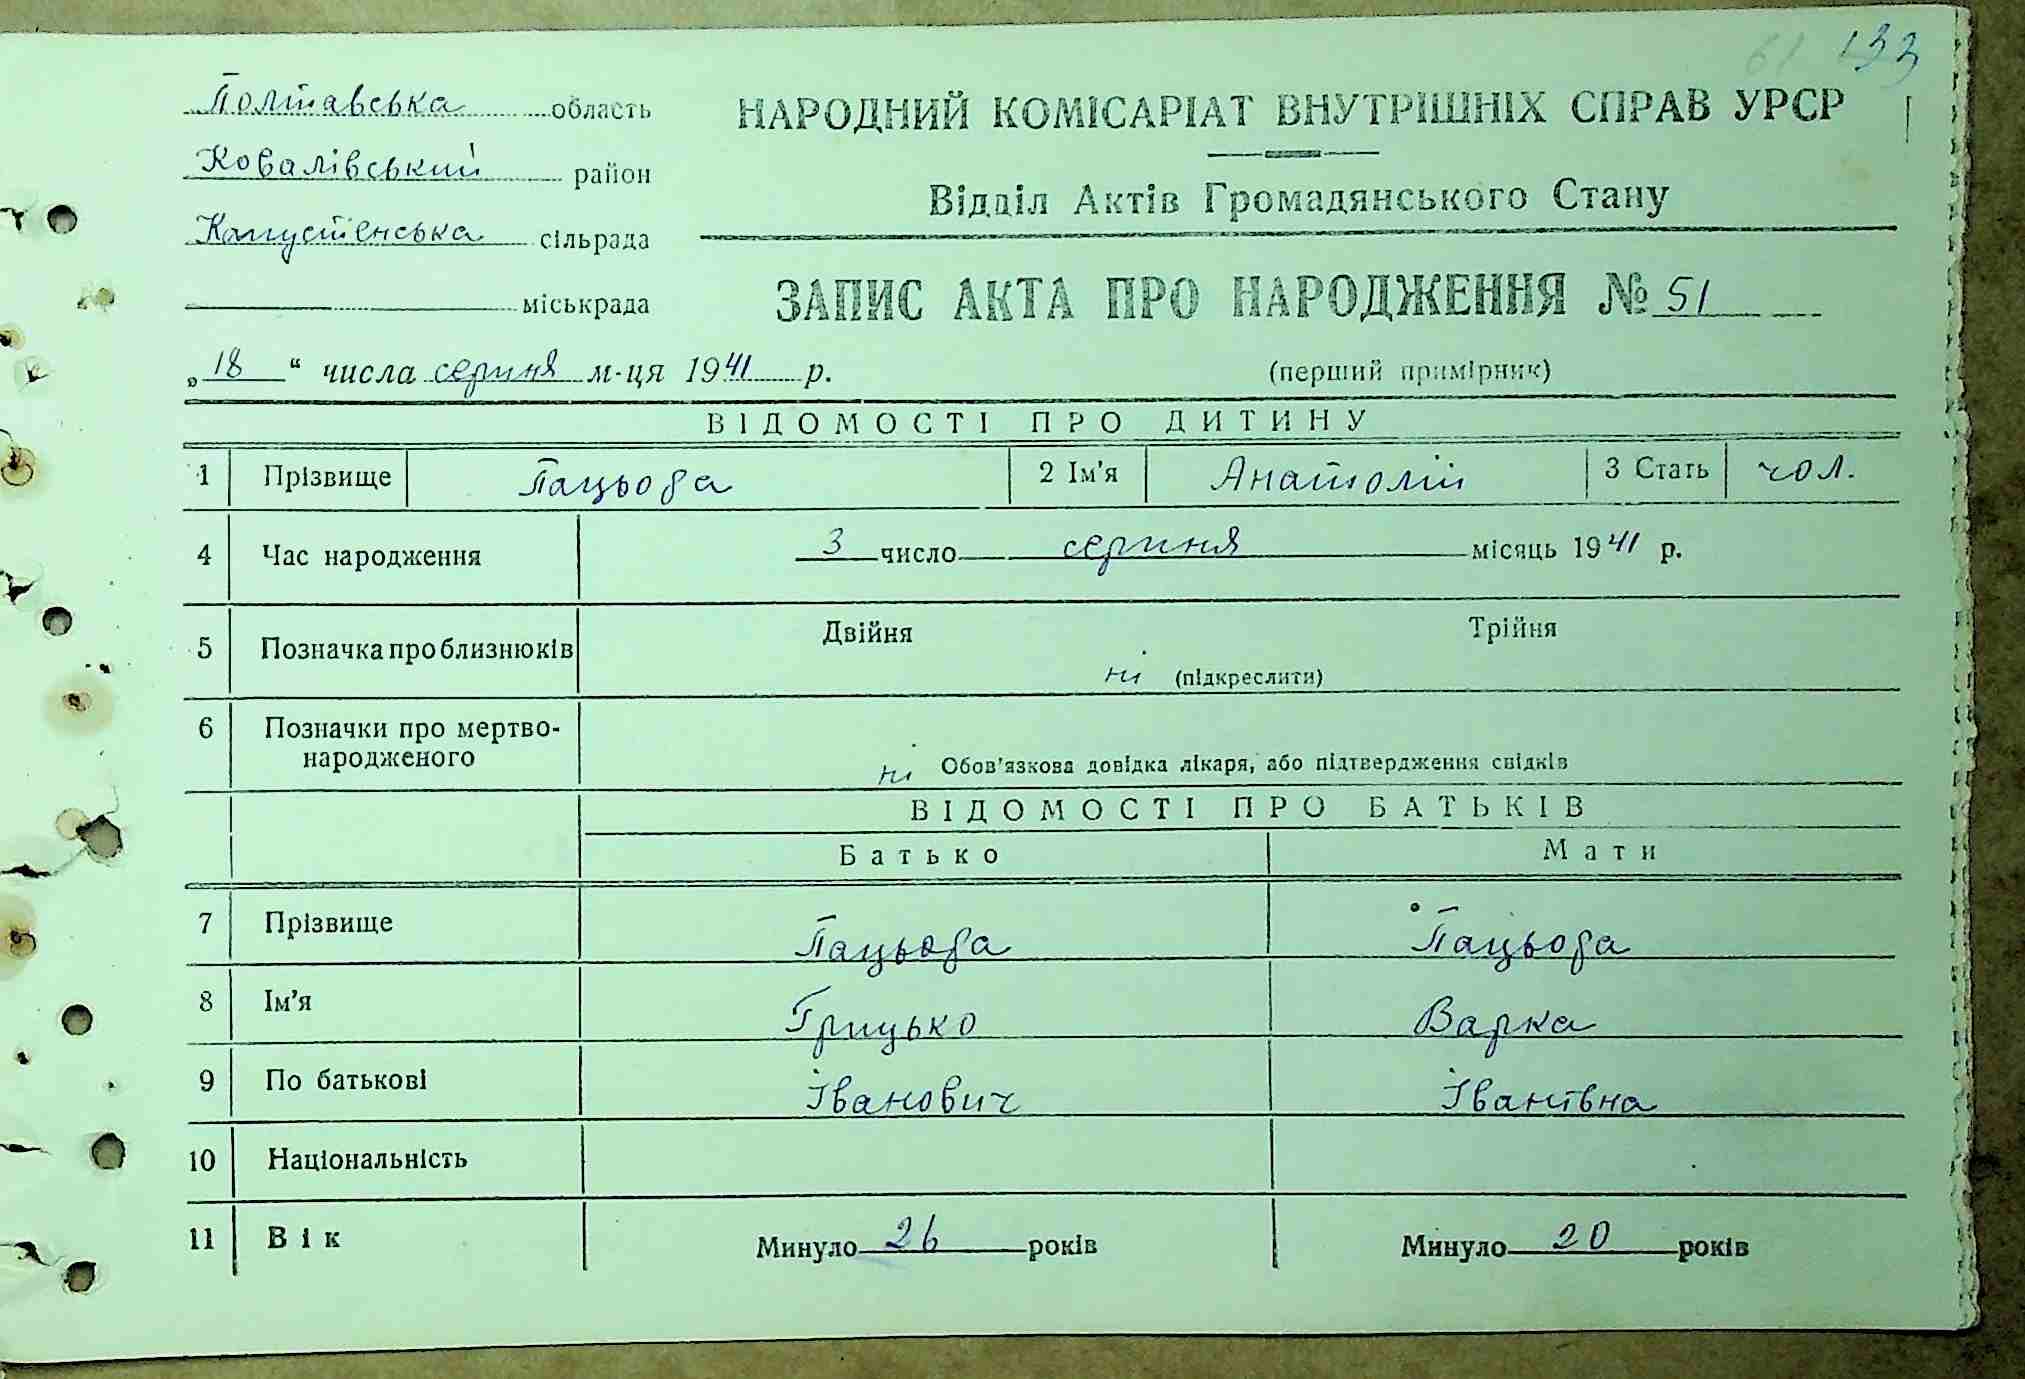 61 133
Полтавська область
НАРОДНИЙ КОМІСАРІАТ ВНУТРІШНІХ СПРАВ УРСР
Ковалівський район
Відділ Актів Громадянського Стану
Капустенська сільрада
міськрада
ЗАПИС АКТА ПРО НАРОДЖЕННЯ № 51
„18“ числа серпня м-ця 1941 р.
(перший примірник)
ВІДОМОСТІ ПРО ДИТИНУ
1 Прізвище Пацьова 2 Ім'я Анатолій 3 Стать чол.
4 Час народження 3 число серпня місяць 1941 р.
5 Позначка про близнюків Двійня Трійня
ні (підкреслити)
6 Позначки про мертво-
народженого
ні Обов'язкова довідка лікаря, або підтвердження свідків
ВІДОМОСТІ ПРО БАТЬКІВ
Батько Мати
7 Прізвище Пацьова Пацьова
8 Ім'я Грицько Варка
9 По батькові Іванович Іванівна
10 Національність
11 Вік Минуло 26 років Минуло 20 років